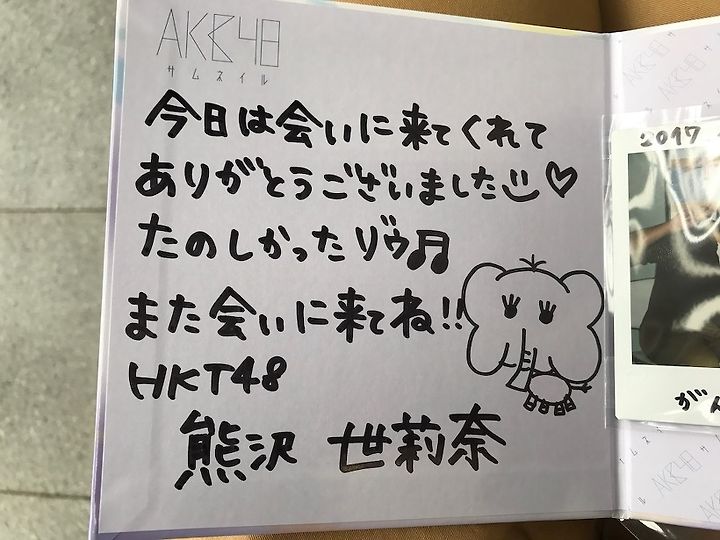 AKB48
サムネイル
今日は会いに来てくれて
ありがとうございました
たのしかったリヴ
また会いに来てね!!
HKT48
熊沢 世莉奈
2017
AKB48
サムネイル
AKB48